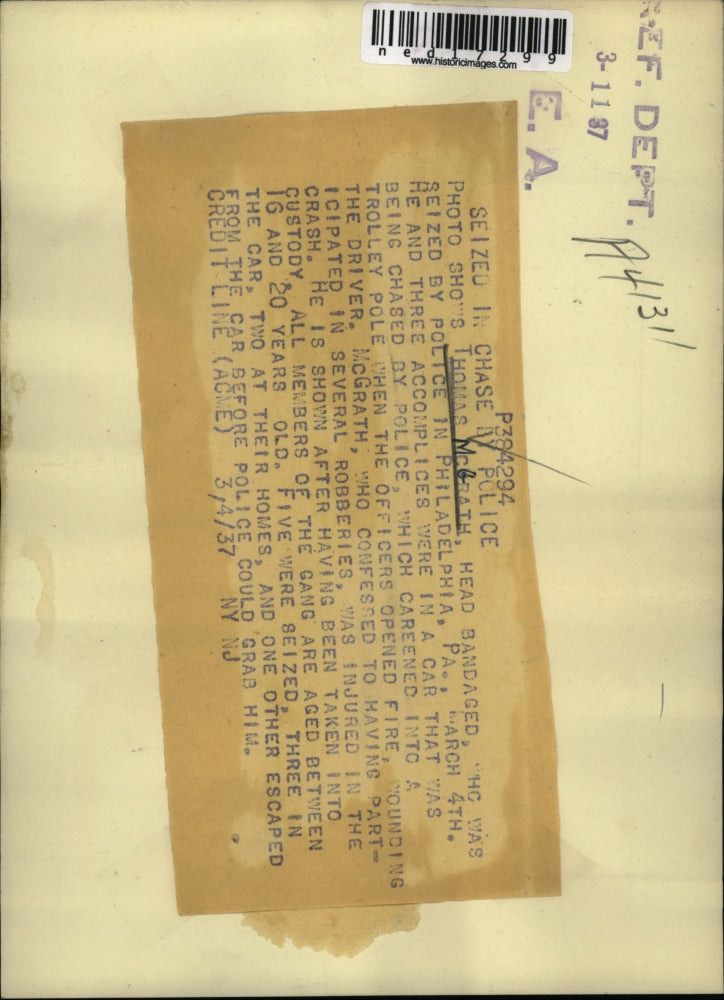 ned17299
www.historicimages.com
REF. DEPT.
3-11 37
E. A.
A4131
P394294
SEIZED IN CHASE BY POLICE
PHOTO SHOWS THOMAS MCGRATH, HEAD BANDAGED, WHO WAS
SEIZED BY POLICE IN PHILADELPHIA, PA., MARCH 4TH.
HE AND THREE ACCOMPLICES WERE IN A CAR THAT WAS
BEING CHASED BY POLICE, WHICH CAREENED INTO A
TROLLEY POLE WHEN THE OFFICERS OPENED FIRE, WOUNDING
THE DRIVER. MCGRATH, WHO CONFESSED TO HAVING PART-
ICIPATED IN SEVERAL ROBBERIES, WAS INJURED IN THE
CRASH. HE IS SHOWN AFTER HAVING BEEN TAKEN INTO
CUSTODY. ALL MEMBERS OF THE GANG ARE AGED BETWEEN
16 AND 20 YEARS OLD. FIVE WERE SEIZED, THREE IN
THE CAR, TWO AT THEIR HOMES, AND ONE OTHER ESCAPED
FROM THE CAR BEFORE POLICE COULD GRAB HIM.
CREDIT LINE (ACME) 3/4/37 NY NJ